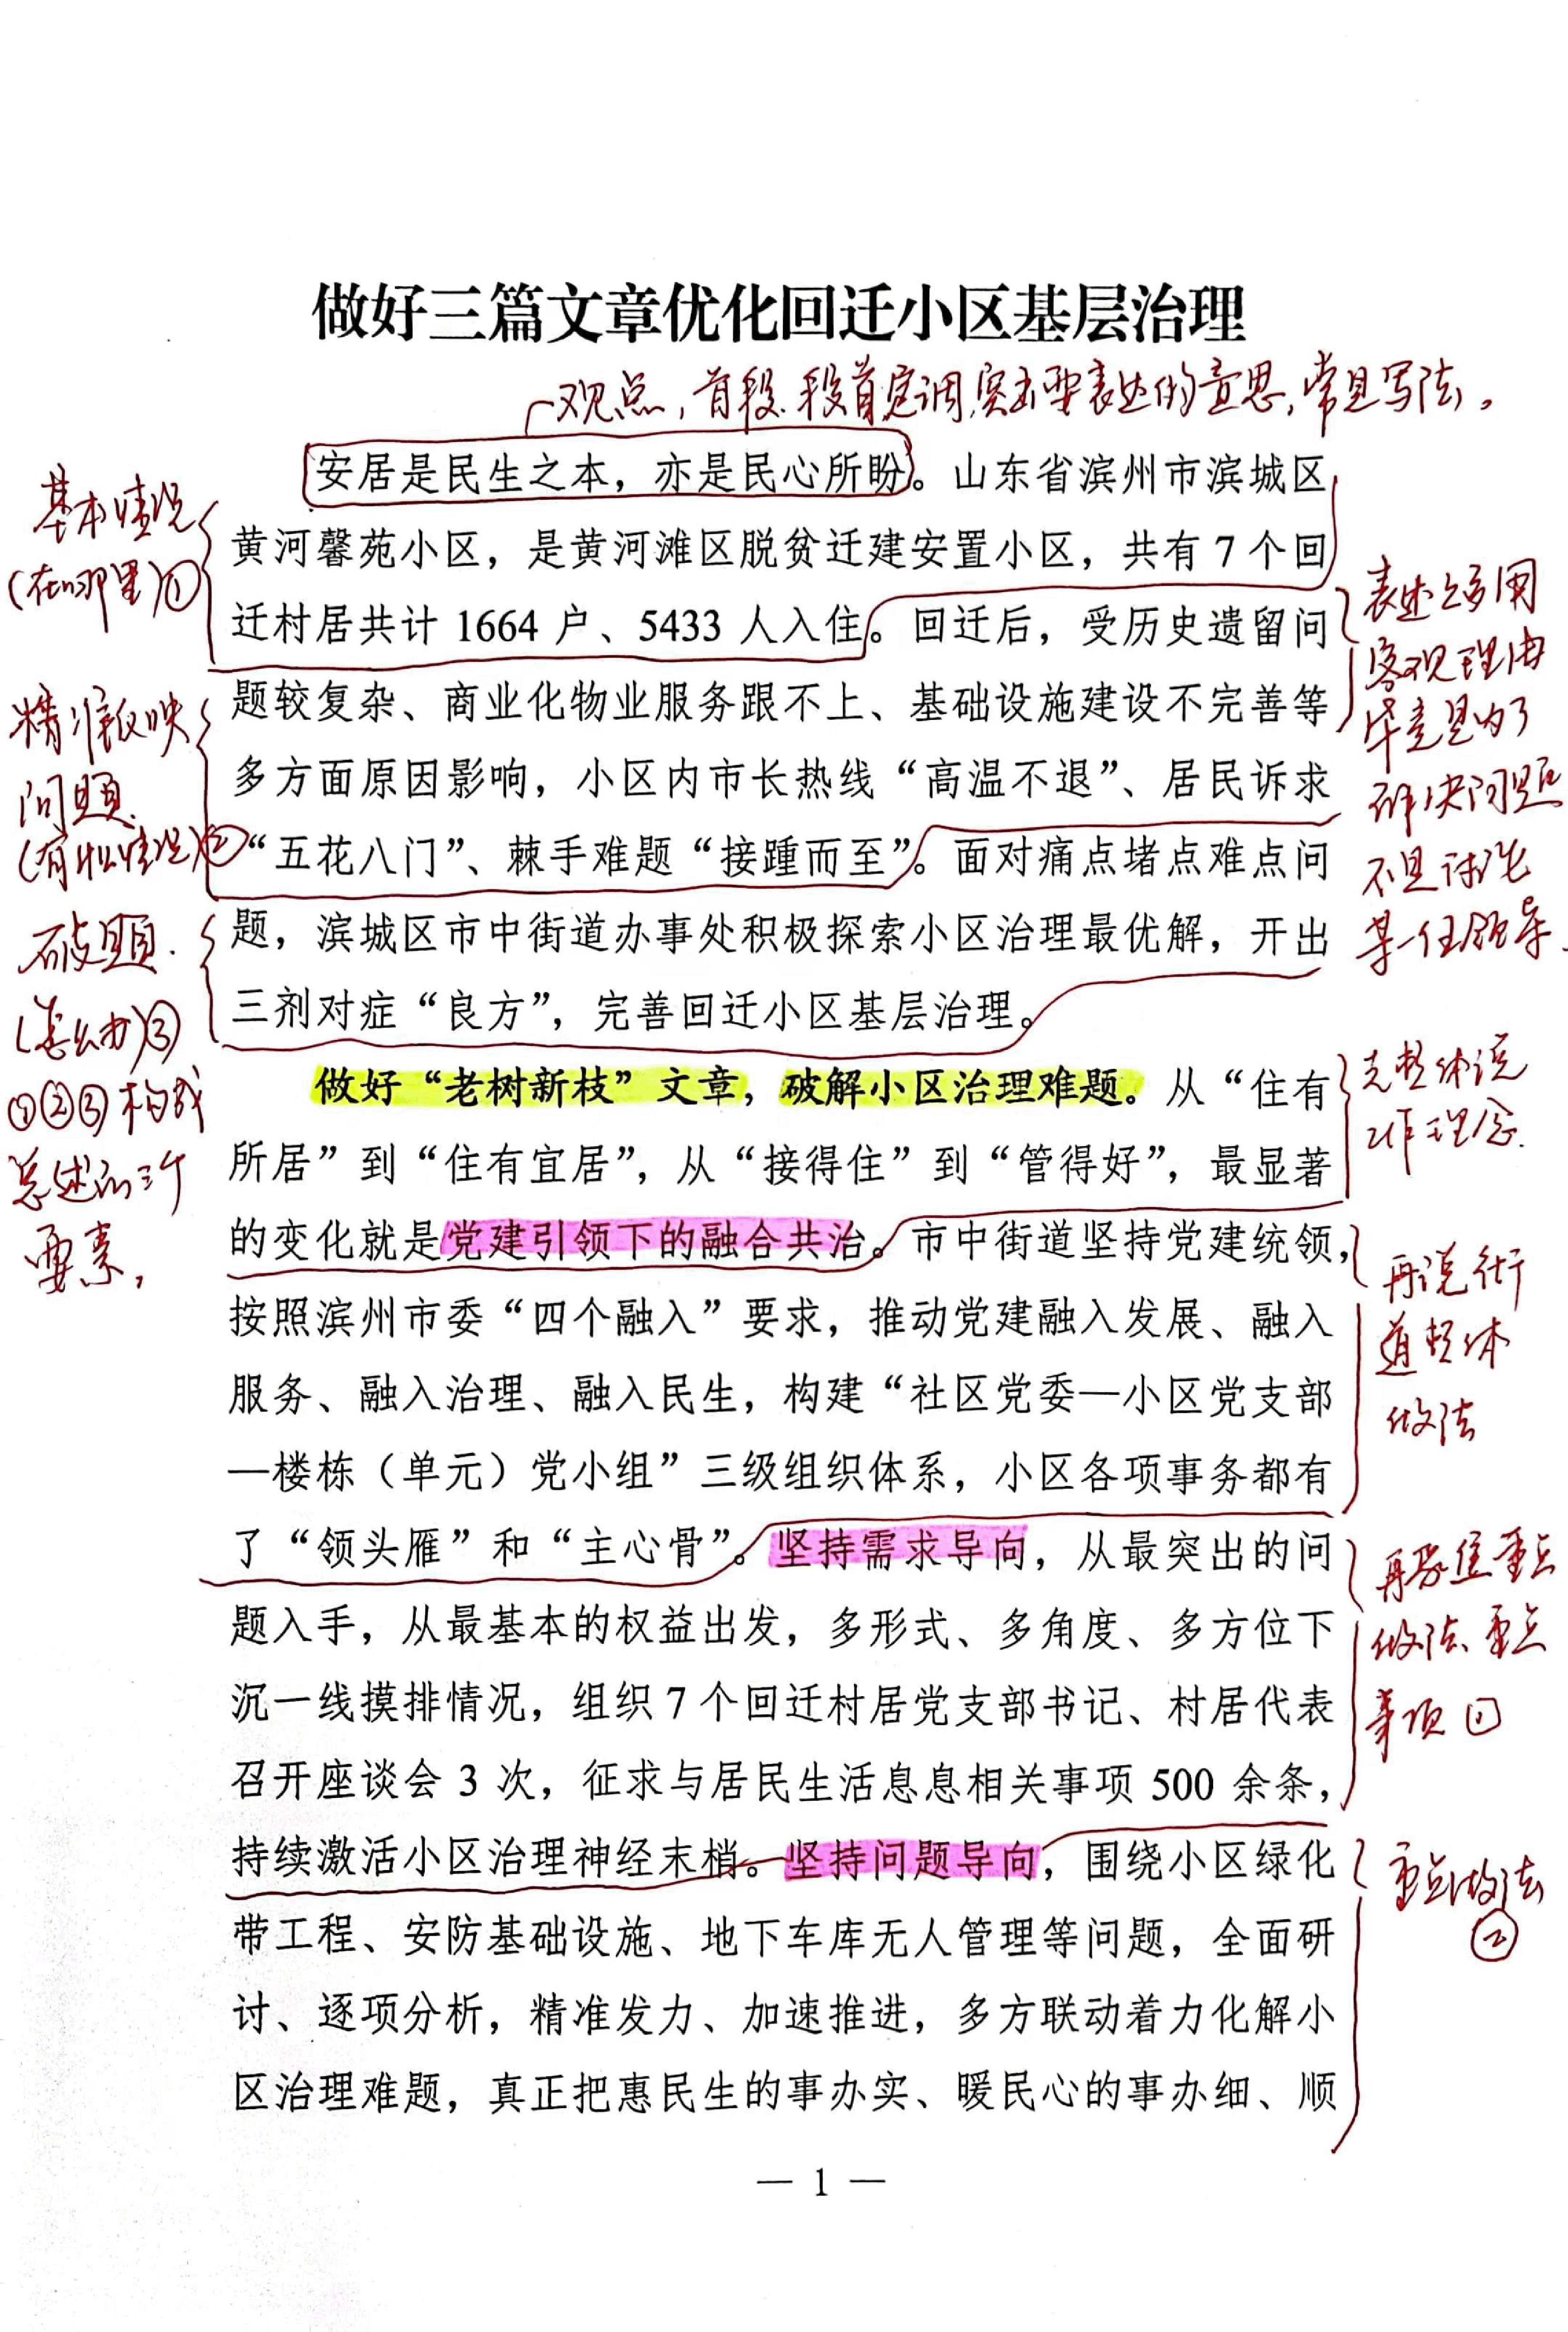 做好三篇文章优化回迁小区基层治理
观点,首段.段首定调,突出要表达的意思,常见写法。
安居是民生之本，亦是民心所盼。山东省滨州市滨城区
黄河馨苑小区，是黄河滩区脱贫迁建安置小区，共有 7 个回
迁村居共计 1664 户、5433 人入住。回迁后，受历史遗留问
题较复杂、商业化物业服务跟不上、基础设施建设不完善等
多方面原因影响，小区内市长热线“高温不退”、居民诉求
“五花八门”、棘手难题“接踵而至”。面对痛点堵点难点问
题，滨城区市中街道办事处积极探索小区治理最优解，开出
三剂对症“良方”，完善回迁小区基层治理。
做好“老树新枝”文章，破解小区治理难题。从“住有
所居”到“住有宜居”，从“接得住”到“管得好”，最显著
的变化就是党建引领下的融合共治。市中街道坚持党建统领，
按照滨州市委“四个融入”要求，推动党建融入发展、融入
服务、融入治理、融入民生，构建“社区党委—小区党支部
—楼栋（单元）党小组”三级组织体系，小区各项事务都有
了“领头雁”和“主心骨”。坚持需求导向，从最突出的问
题入手，从最基本的权益出发，多形式、多角度、多方位下
沉一线摸排情况，组织 7 个回迁村居党支部书记、村居代表
召开座谈会 3 次，征求与居民生活息息相关事项 500 余条，
持续激活小区治理神经末梢。坚持问题导向，围绕小区绿化
带工程、安防基础设施、地下车库无人管理等问题，全面研
讨、逐项分析，精准发力、加速推进，多方联动着力化解小
区治理难题，真正把惠民生的事办实、暖民心的事办细、顺
基本情况
(在哪里)①
精准反映
问题.
(有啥情况)②
破题.
(怎么办)③
①②③构成
总述的三个
要素,
表述上多用
客观理由
毕竟是为了
解决问题
不是讨论
某一任领导.
先整体说
工作理念.
再说街
道整体
做法
再聚焦重点
做法、重点
事项①
重点做法
②
— 1 —